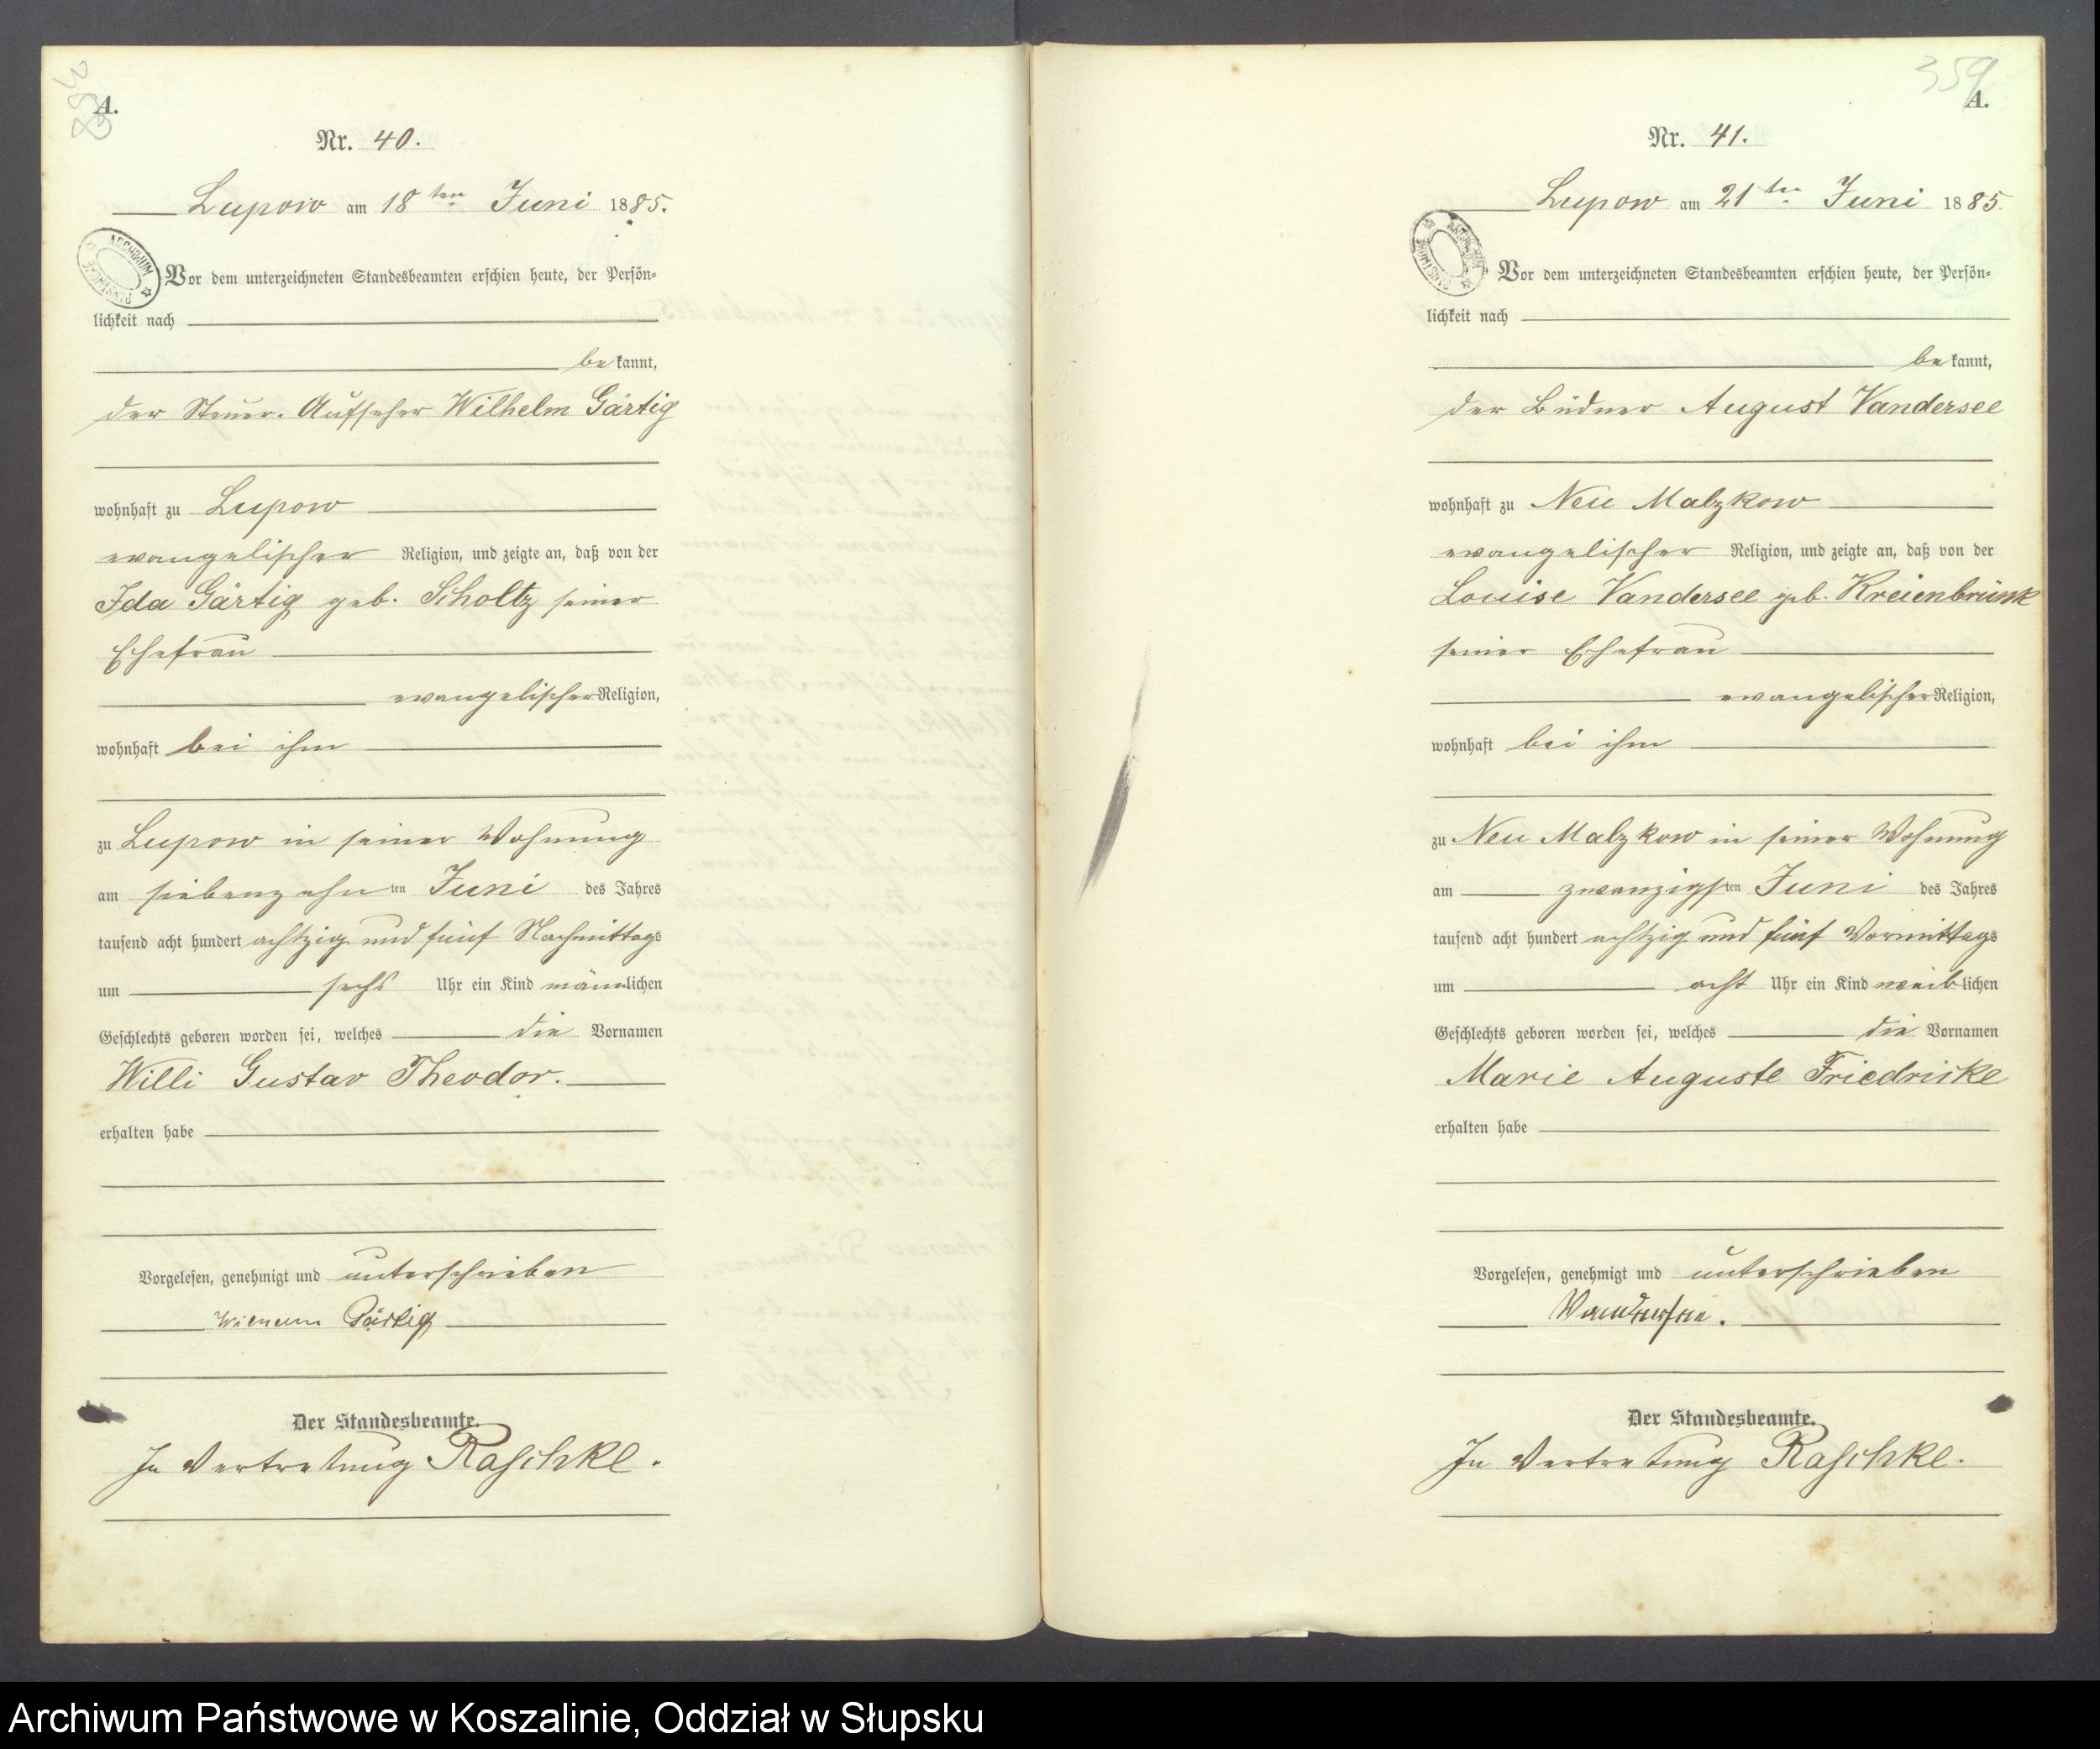 358
A.
Nr. 40.
Lupow am 18ten Juni 1885.
ARCHIWUM PAŃSTWOWE
Vor dem unterzeichneten Standesbeamten erschien heute, der Persön-
lichkeit nach
be kannt,
der Steuer-Aufseher Wilhelm Gärtig
wohnhaft zu Lupow
evangelischer Religion, und zeigte an, daß von der
Ida Gärtig geb. Scholtz seiner
Ehefrau
evangelischer Religion,
wohnhaft bei ihm
zu Lupow in seiner Wohnung
am siebenzehnten Juni des Jahres
tausend acht hundert achtzig und fünf Nachmittags
um sechs Uhr ein Kind männlichen
Geschlechts geboren worden sei, welches die Vornamen
Willi Gustav Theodor.
erhalten habe
Vorgelesen, genehmigt und unterschrieben
Wilhelm Gärtig
Der Standesbeamte.
In Vertretung Raschke.
359
A.
Nr. 41.
Lupow am 21ten Juni 1885
ARCHIWUM PAŃSTWOWE
Vor dem unterzeichneten Standesbeamten erschien heute, der Persön-
lichkeit nach
be kannt,
der Büdner August Vandersee
wohnhaft zu Neu Malzkow
evangelischer Religion, und zeigte an, daß von der
Louise Vandersee geb. Kreienbrink
seiner Ehefrau
evangelischer Religion,
wohnhaft bei ihm
zu Neu Malzkow in seiner Wohnung
am zwanzigsten Juni des Jahres
tausend acht hundert achtzig und fünf Vormittags
um acht Uhr ein Kind weiblichen
Geschlechts geboren worden sei, welches die Vornamen
Marie Auguste Friedrike
erhalten habe
Vorgelesen, genehmigt und unterschrieben
Vandersee.
Der Standesbeamte.
In Vertretung Raschke.
Archiwum Państwowe w Koszalinie, Oddział w Słupsku